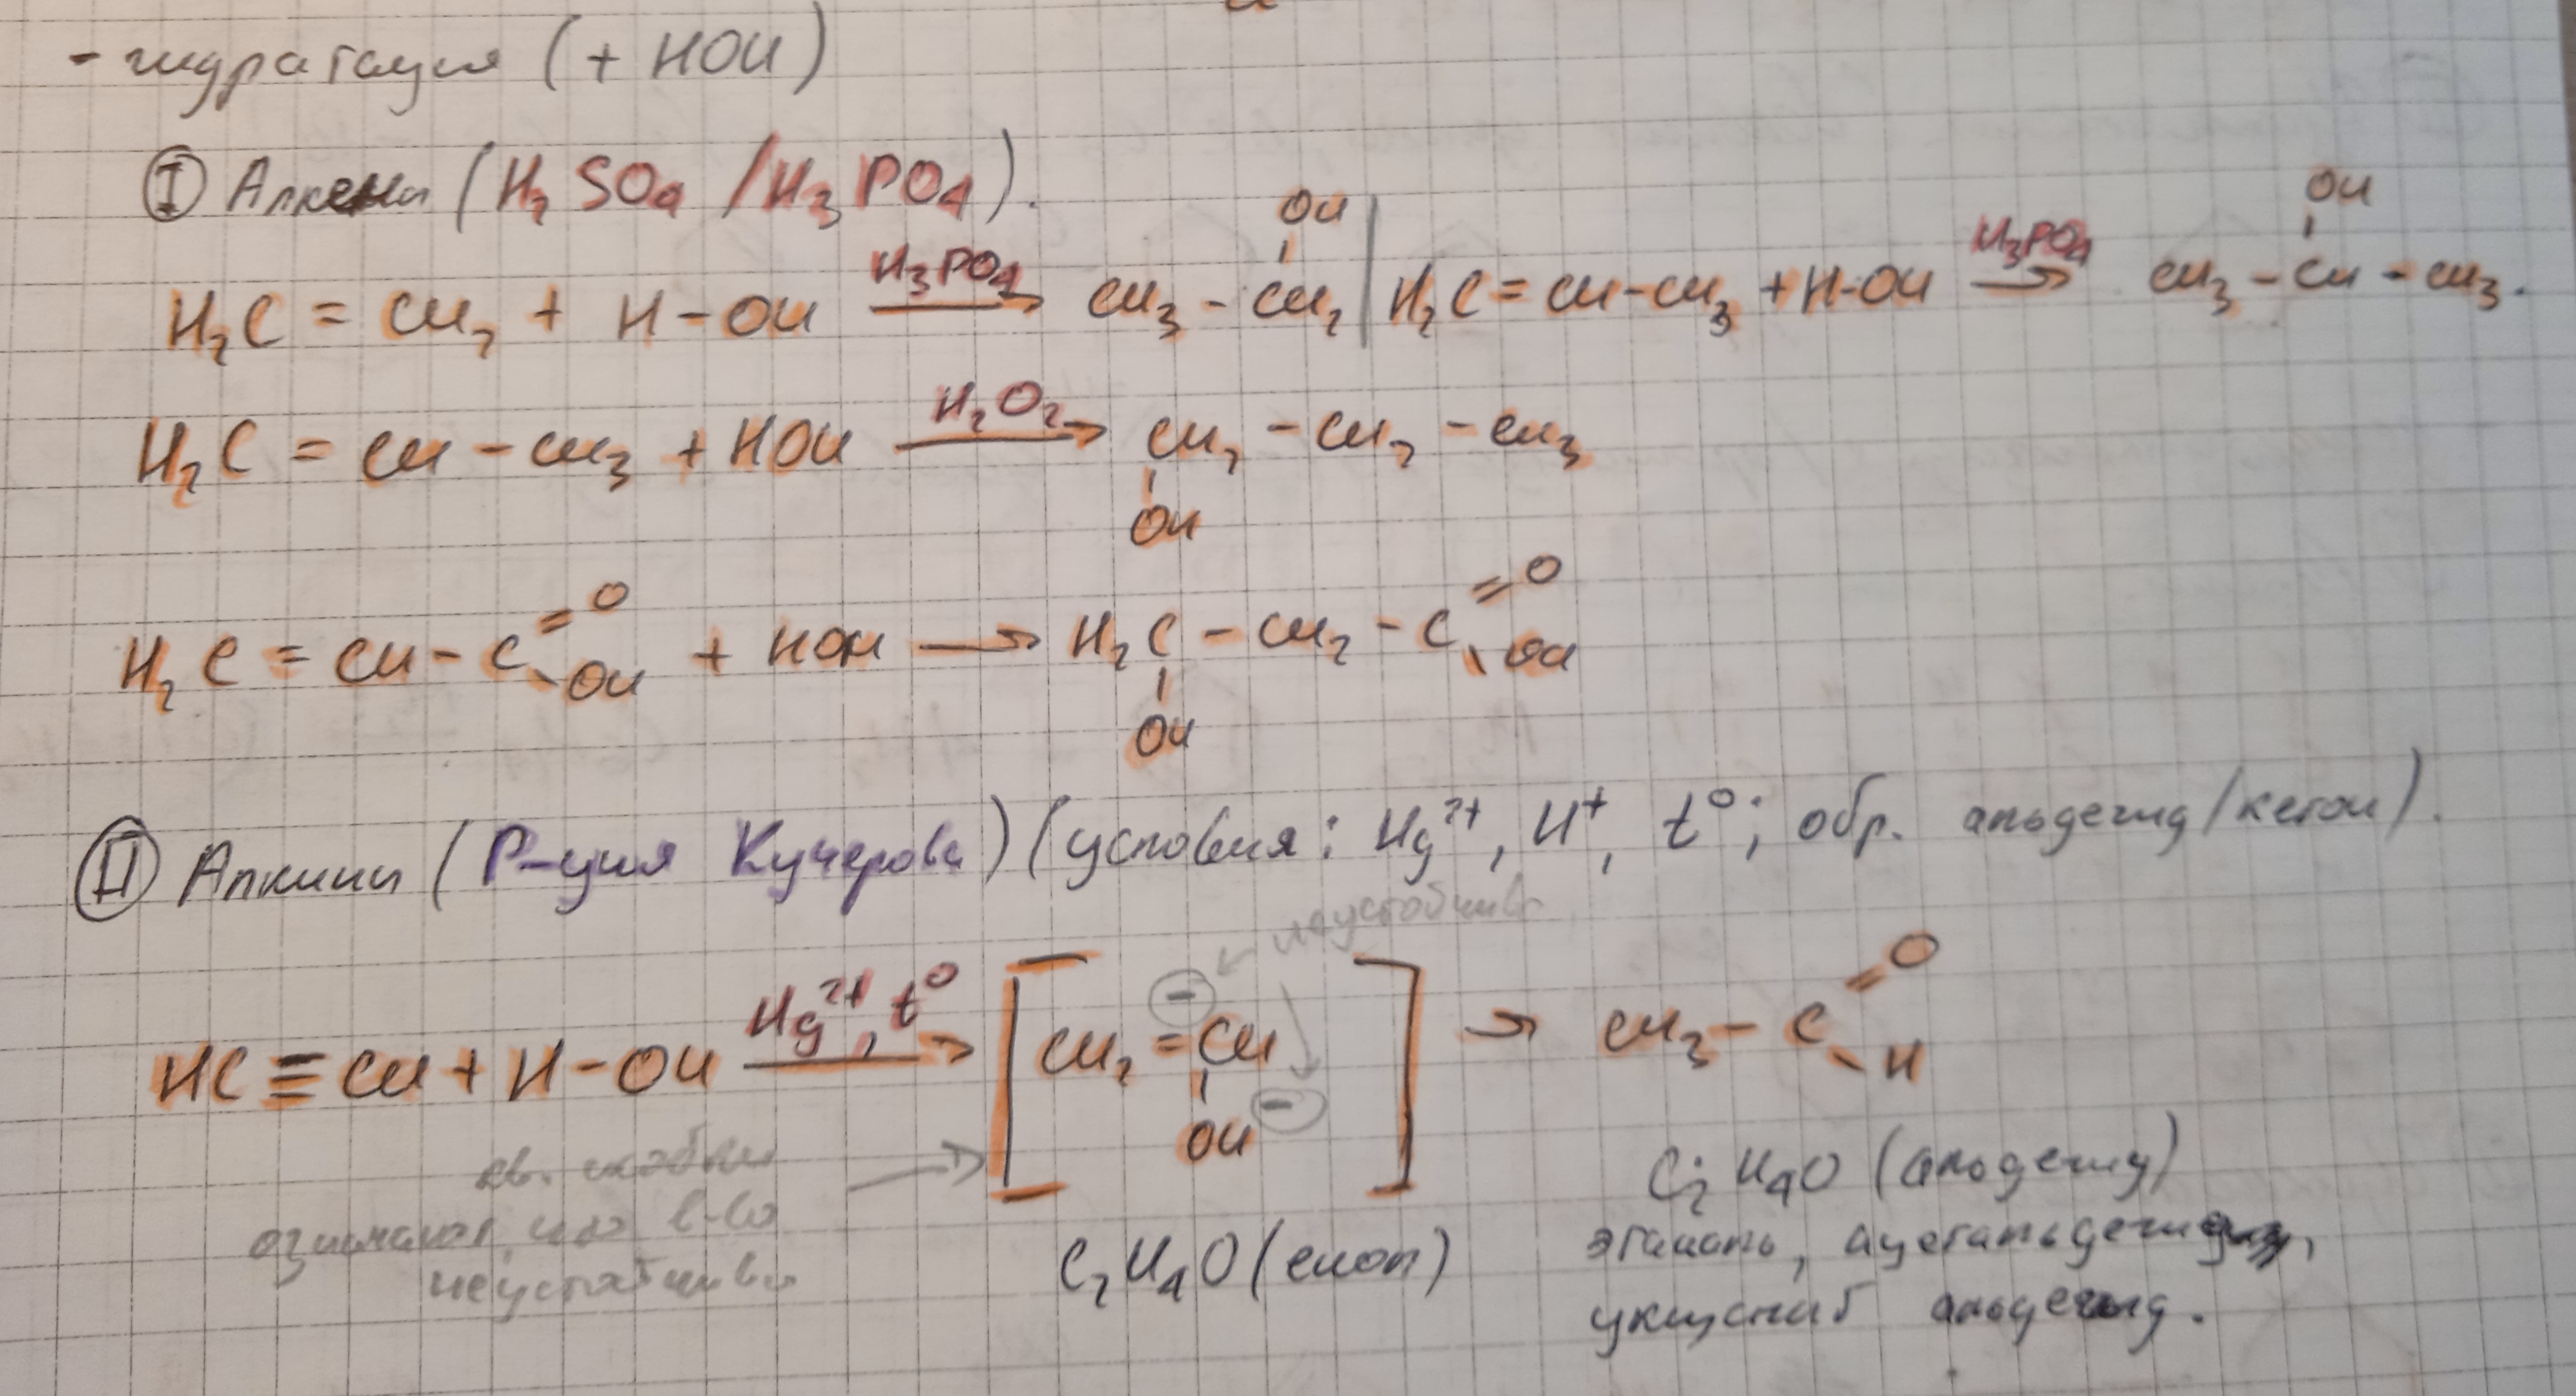 - гидратация (+ HOH)
Ⓘ Алкены (H₂SO₄ / H₃PO₄).
H₂C = CH₂ + H - OH →(H₃PO₄) CH₃ - CH₂(OH) | H₂C = CH - CH₃ + H-OH →(H₃PO₄) CH₃ - CH(OH) - CH₃.
H₂C = CH - CH₃ + HOH →(H₂O₂) CH₂(OH) - CH₂ - CH₃
H₂C = CH - C(=O)-OH + HOH → H₂C(OH) - CH₂ - C(=O)-OH
Ⓘ︎Ⓘ Алкины (Р-ция Кучерова) (условия: Hg²⁺, H⁺, t⁰; обр. альдегид/кетон).
неустойчив
HC ≡ CH + H - OH →(Hg²⁺, t⁰) [CH₂ = CH(OH)] → CH₃ - C(=O)-H
кв. скобки
означают, что в-во
неустойчиво
C₂H₄O (енол)
C₂H₄O (альдегид)
этаналь, ацетальдегид,
уксусный альдегид.